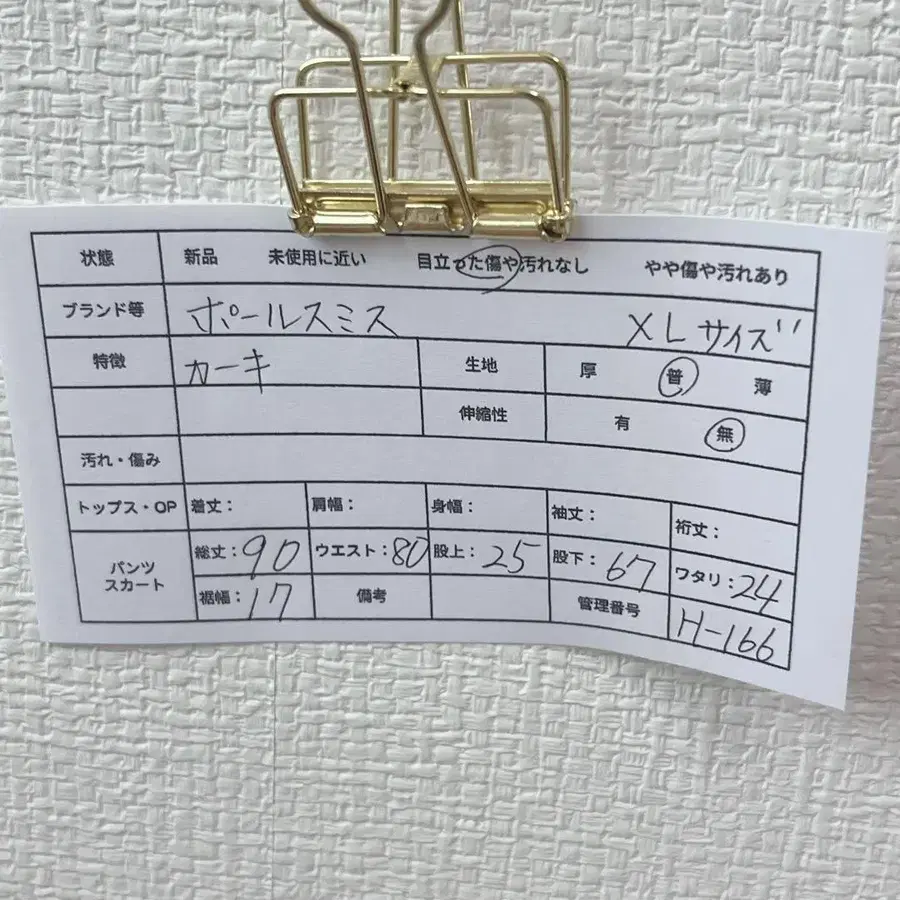 状態 新品 未使用に近い 目立った傷や汚れなし やや傷や汚れあり
ブランド等 ポールスミス XLサイズ
特徴 カーキ 生地 厚 普 薄
伸縮性 有 無
汚れ・傷み
トップス・OP 着丈: 肩幅: 身幅: 袖丈: 裄丈:
パンツ スカート 総丈:90 ウエスト:80 股上:25 股下:67 ワタリ:24
裾幅:17 備考 管理番号 H-166